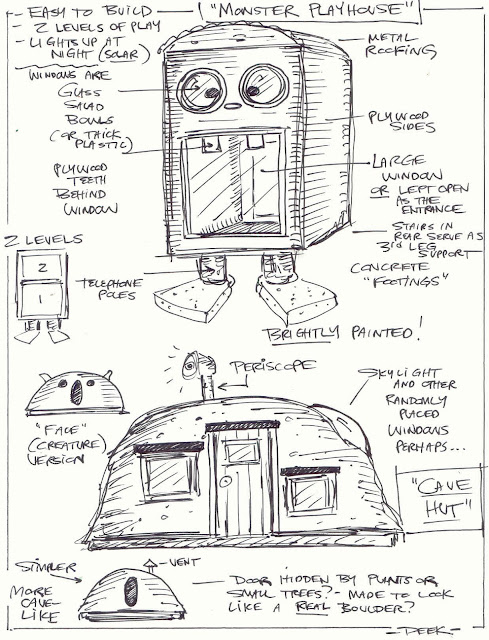 - EASY TO BUILD
"MONSTER PLAYHOUSE"
- 2 LEVELS OF PLAY
- LIGHTS UP AT
NIGHT (SOLAR)
METAL
ROOFING
WINDOWS ARE
GLASS
SALAD
BOWLS
(OR THICK
PLASTIC)
PLYWOOD
SIDES
PLYWOOD
TEETH
BEHIND
WINDOW
LARGE
WINDOW
OR LEFT OPEN
AS THE
ENTRANCE
STAIRS IN
REAR SERVE AS
3RD LEG
SUPPORT
2 LEVELS
2
1
TELEPHONE
POLES
CONCRETE
"FOOTINGS"
BRIGHTLY PAINTED!
PERISCOPE
SKYLIGHT
AND OTHER
RANDOMLY
PLACED
WINDOWS
PERHAPS...
"FACE"
(CREATURE)
VERSION
"CAVE
HUT"
SIMPLER
VENT
MORE
CAVE-
LIKE
DOOR HIDDEN BY PLANTS OR
SMALL TREES? - MADE TO LOOK
LIKE A REAL BOULDER?
- PEEK -